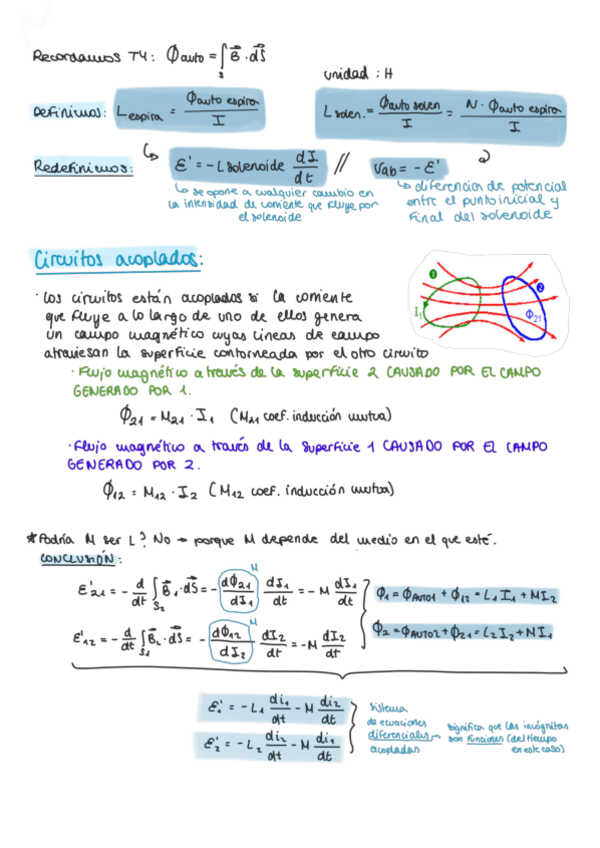 Recordamos T4: Φauto = ∫s B⃗ · dS⃗
unidad : H
Definimos: L espira = Φauto espira / I
L solen. = Φauto solen / I = N · Φauto espira / I
Redefinimos: ε' = - L solenoide dI/dt // Vab = - ε'
↳ se opone a cualquier cambio en
la intensidad de corriente que fluye por
el solenoide
↳ diferencia de potencial
entre el punto inicial y
final del solenoide
Circuitos acoplados:
· Los circuitos están acoplados si la corriente
que fluye a lo largo de uno de ellos genera
un campo magnético cuyas líneas de campo
atraviesan la superficie contorneada por el otro circuito
1 2
I1 Φ21
· Flujo magnético a través de la superficie 2 CAUSADO POR EL CAMPO
GENERADO POR 1.
Φ21 = M21 · I1 (M21 coef. inducción mutua)
· Flujo magnético a través de la superficie 1 CAUSADO POR EL CAMPO
GENERADO POR 2.
Φ12 = M12 · I2 (M12 coef. inducción mutua)
* Podría M ser L? No → porque M depende del medio en el que esté.
CONCLUSIÓN:
M
ε'21 = - d/dt ∫S2 B⃗1 · dS⃗ = - dΦ21/dI1 dI1/dt = - M dI1/dt
Φ1 = ΦAUTO1 + Φ12 = L1 I1 + MI2
M
ε'12 = - d/dt ∫S1 B⃗2 · dS⃗ = - dΦ12/dI2 dI2/dt = - M dI2/dt
Φ2 = ΦAUTO2 + Φ21 = L2 I2 + MI1
ε1' = - L1 di1/dt - M di2/dt
ε2' = - L2 di2/dt - M di1/dt
sistema
de ecuaciones
diferenciales
acopladas
significa que las incógnitas
son funciones (del tiempo
en este caso)